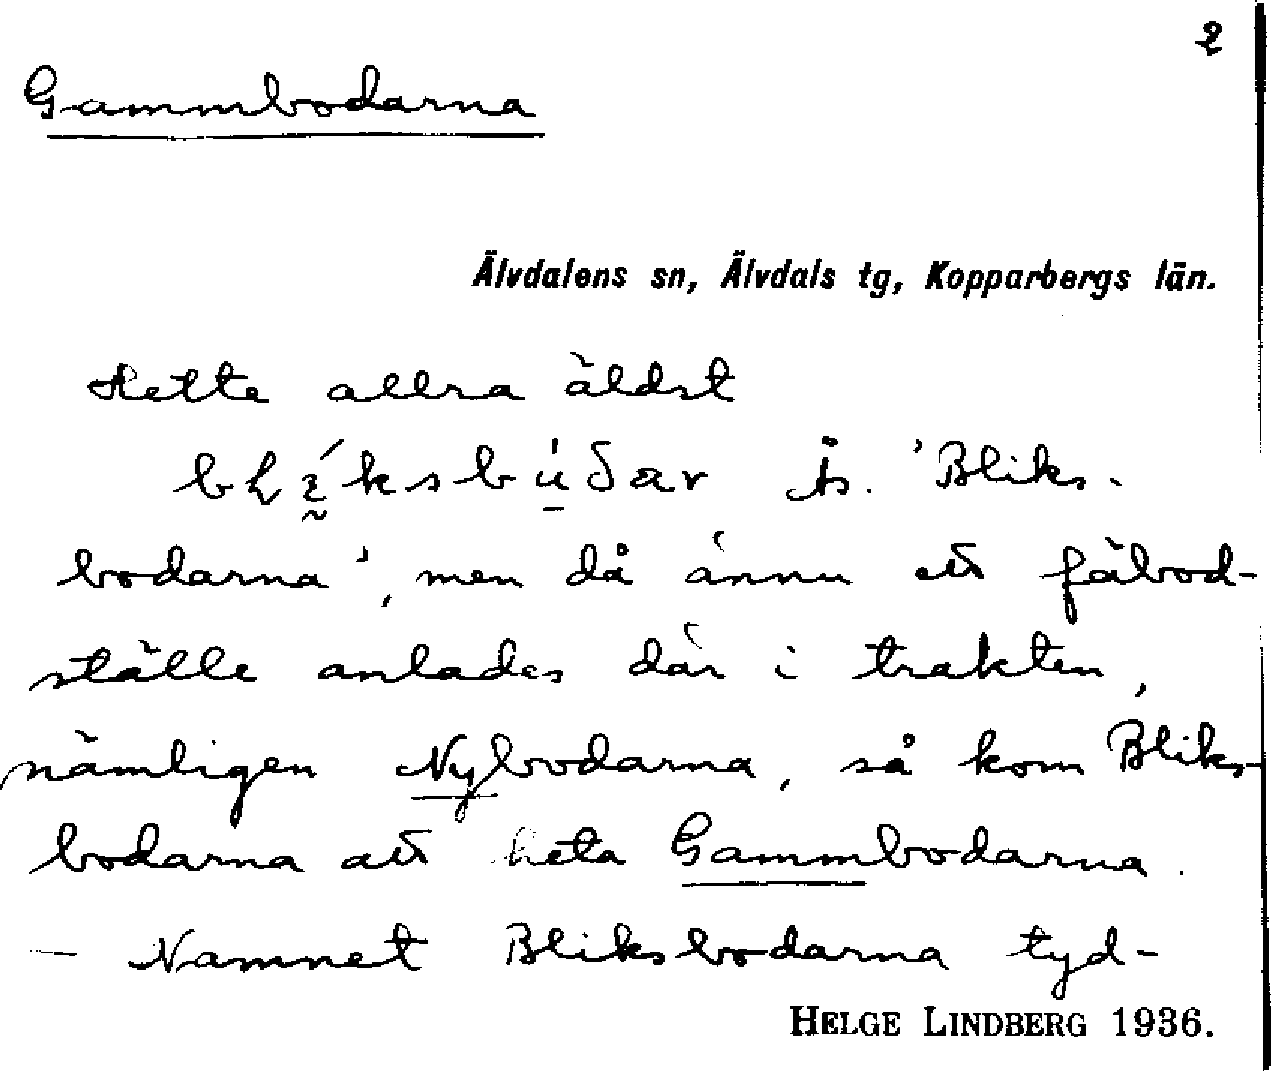 2
Gammbodarna
Älvdalens sn, Älvdals tg, Kopparbergs län.
Hette allra äldst
'Bliks-
bodarna', men då ännu ett fäbod-
ställe anlades där i trakten,
nämligen Nybodarna, så kom Bliks-
bodarna att heta Gammbodarna.
— Namnet Bliksbodarna tyd-
HELGE LINDBERG 1936.